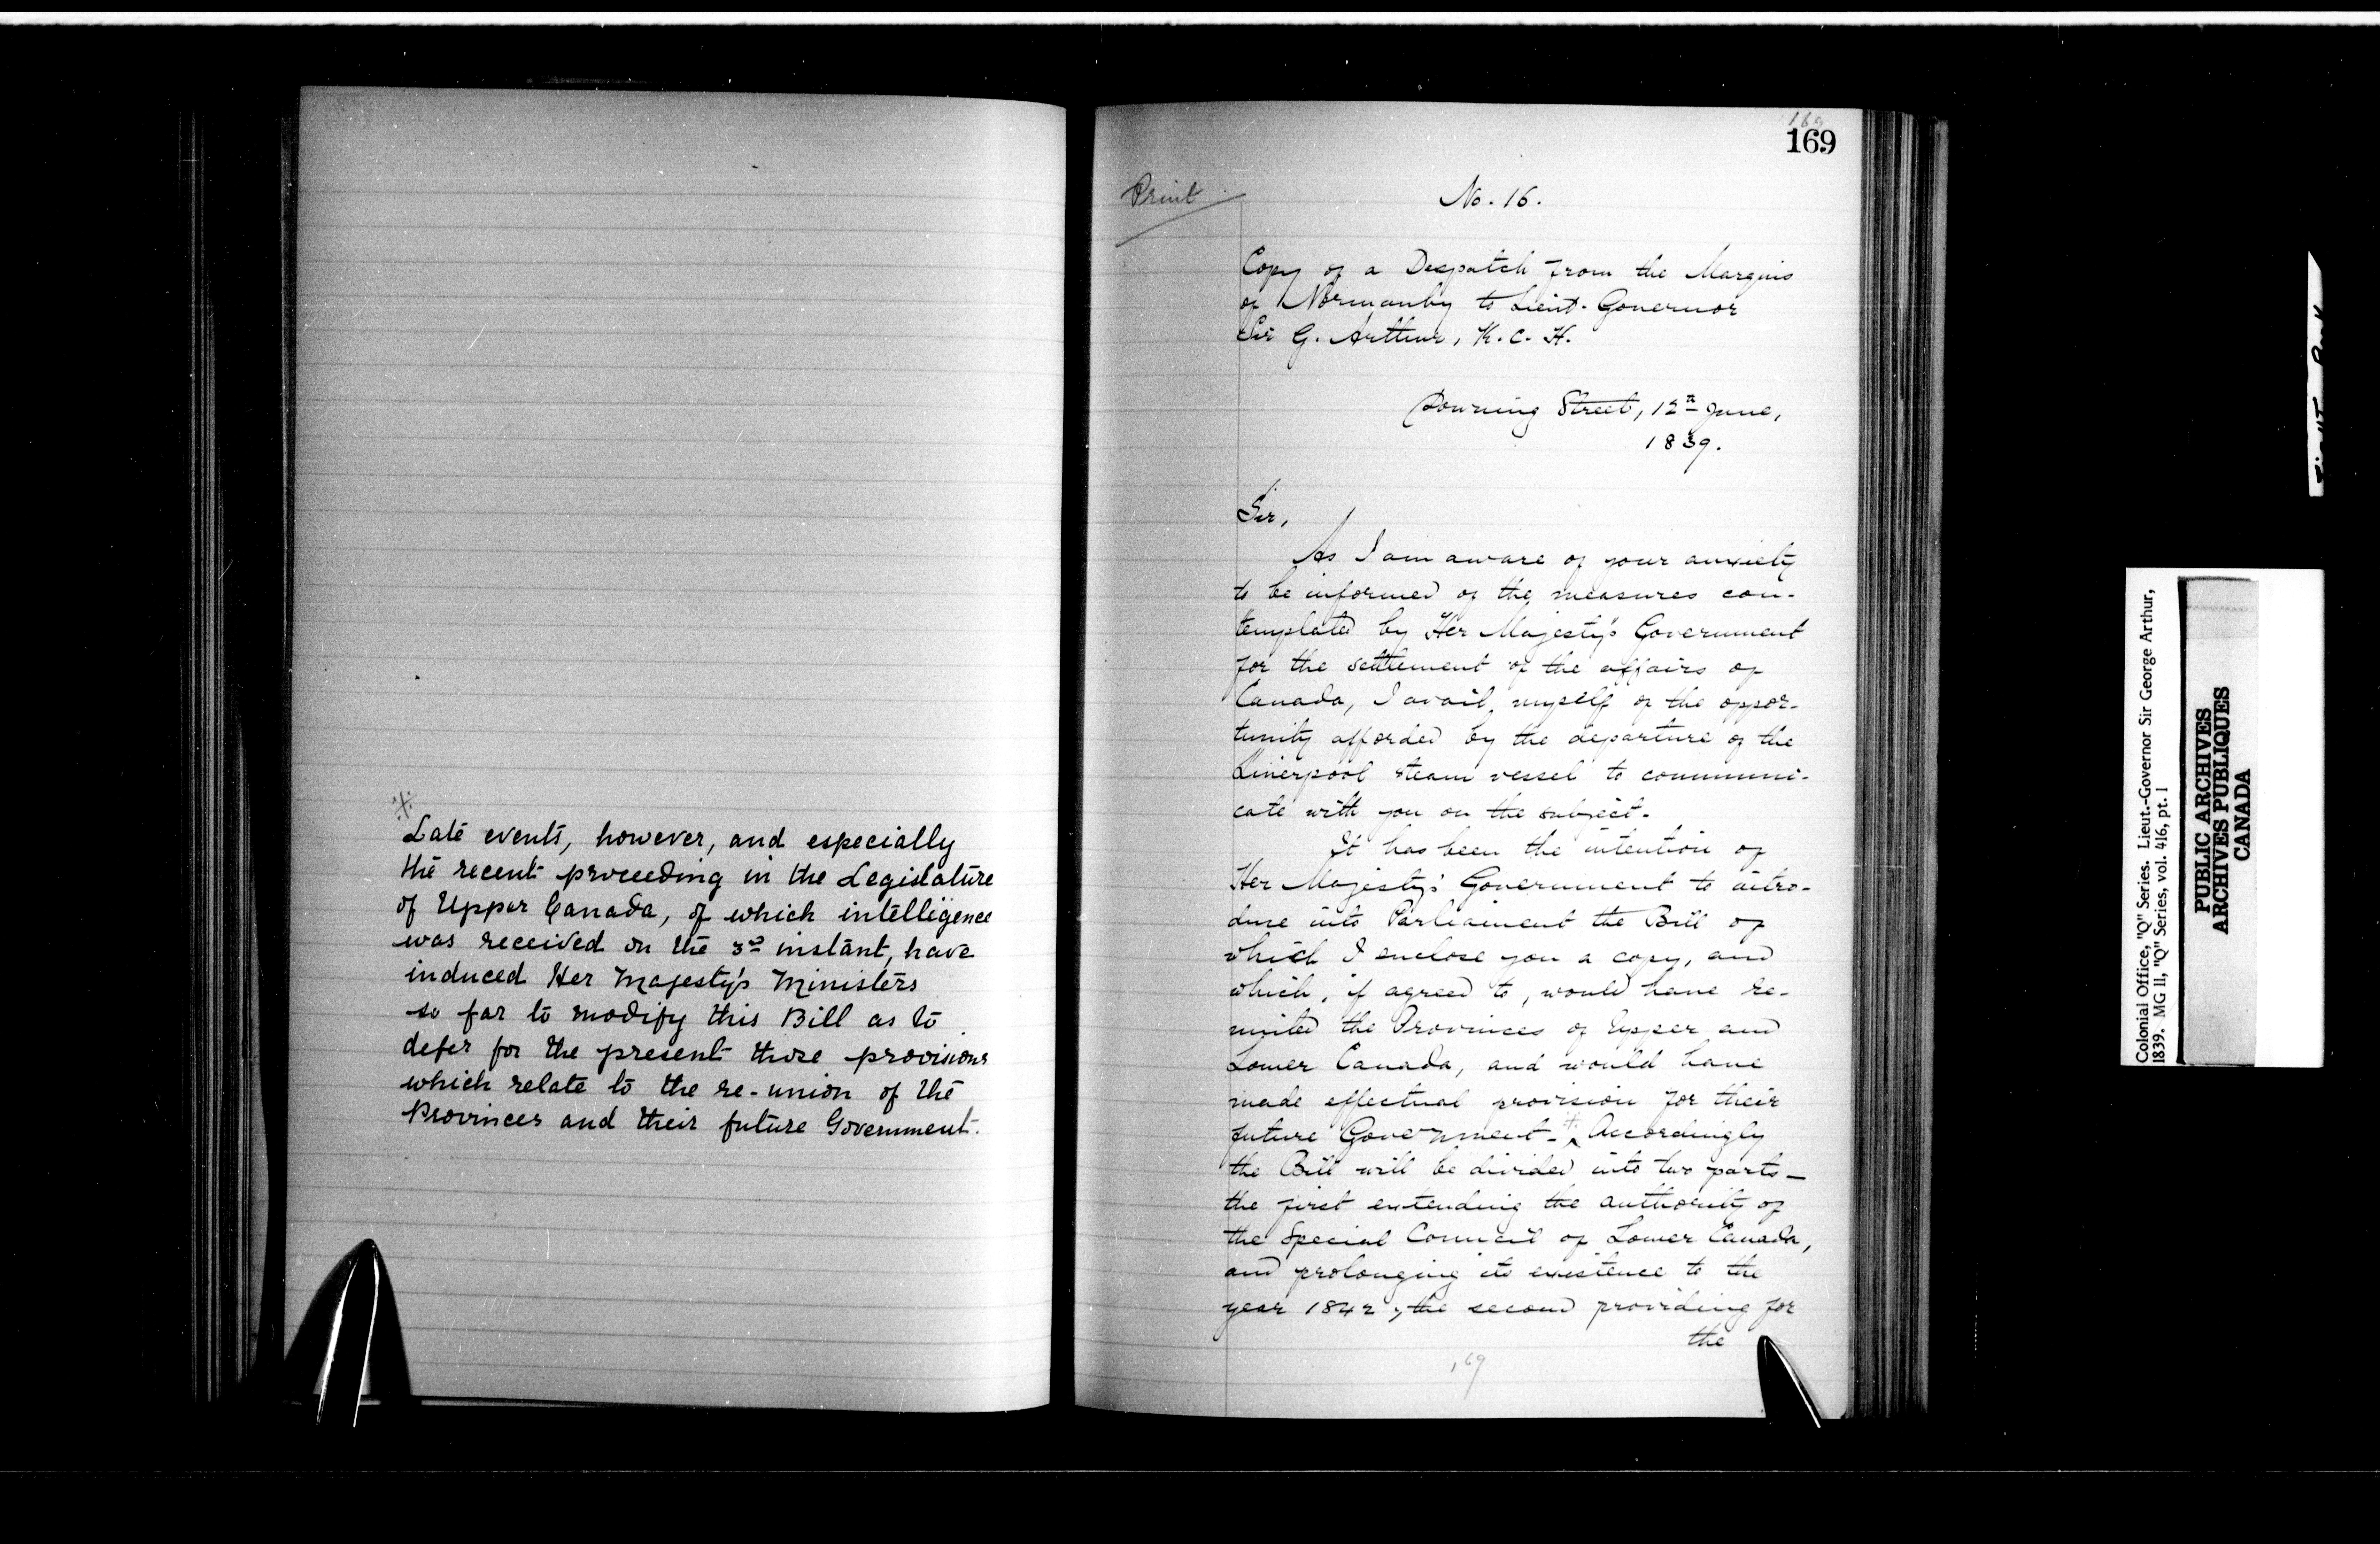 ※
Late events, however, and especially
the recent proceeding in the Legislature
of Upper Canada, of which intelligence
was received on the 3d instant, have
induced Her Majesty's Ministers
so far to modify this Bill as to
defer for the present those provisions
which relate to the re-union of the
Provinces and their future Government.
169
169
Print
No. 16.
Copy of a Despatch from the Marquis
of Normanby to Lieut. Governor
Sir G. Arthur, K.C.H.
Downing Street, 12th June,
1839.
Sir,
As I am aware of your anxiety
to be informed of the measures con-
templated by Her Majesty's Government
for the settlement of the affairs of
Canada, I avail myself of the oppor-
tunity afforded by the departure of the
Liverpool steam vessel to communi-
cate with you on the subject.
It has been the intention of
Her Majesty's Government to intro-
duce into Parliament the Bill of
which I enclose you a copy, and
which, if agreed to, would have re-
united the Provinces of Upper and
Lower Canada, and would have
made effectual provision for their
future Government. ※ Accordingly
the Bill will be divided into two parts—
the first extending the authority of
the Special Council of Lower Canada,
and prolonging its existence to the
year 1842; the second providing for
the
169
Colonial Office, "Q" Series. Lieut.-Governor Sir George Arthur,
1839. MG 11, "Q" Series, vol. 416, pt. 1
PUBLIC ARCHIVES
ARCHIVES PUBLIQUES
CANADA